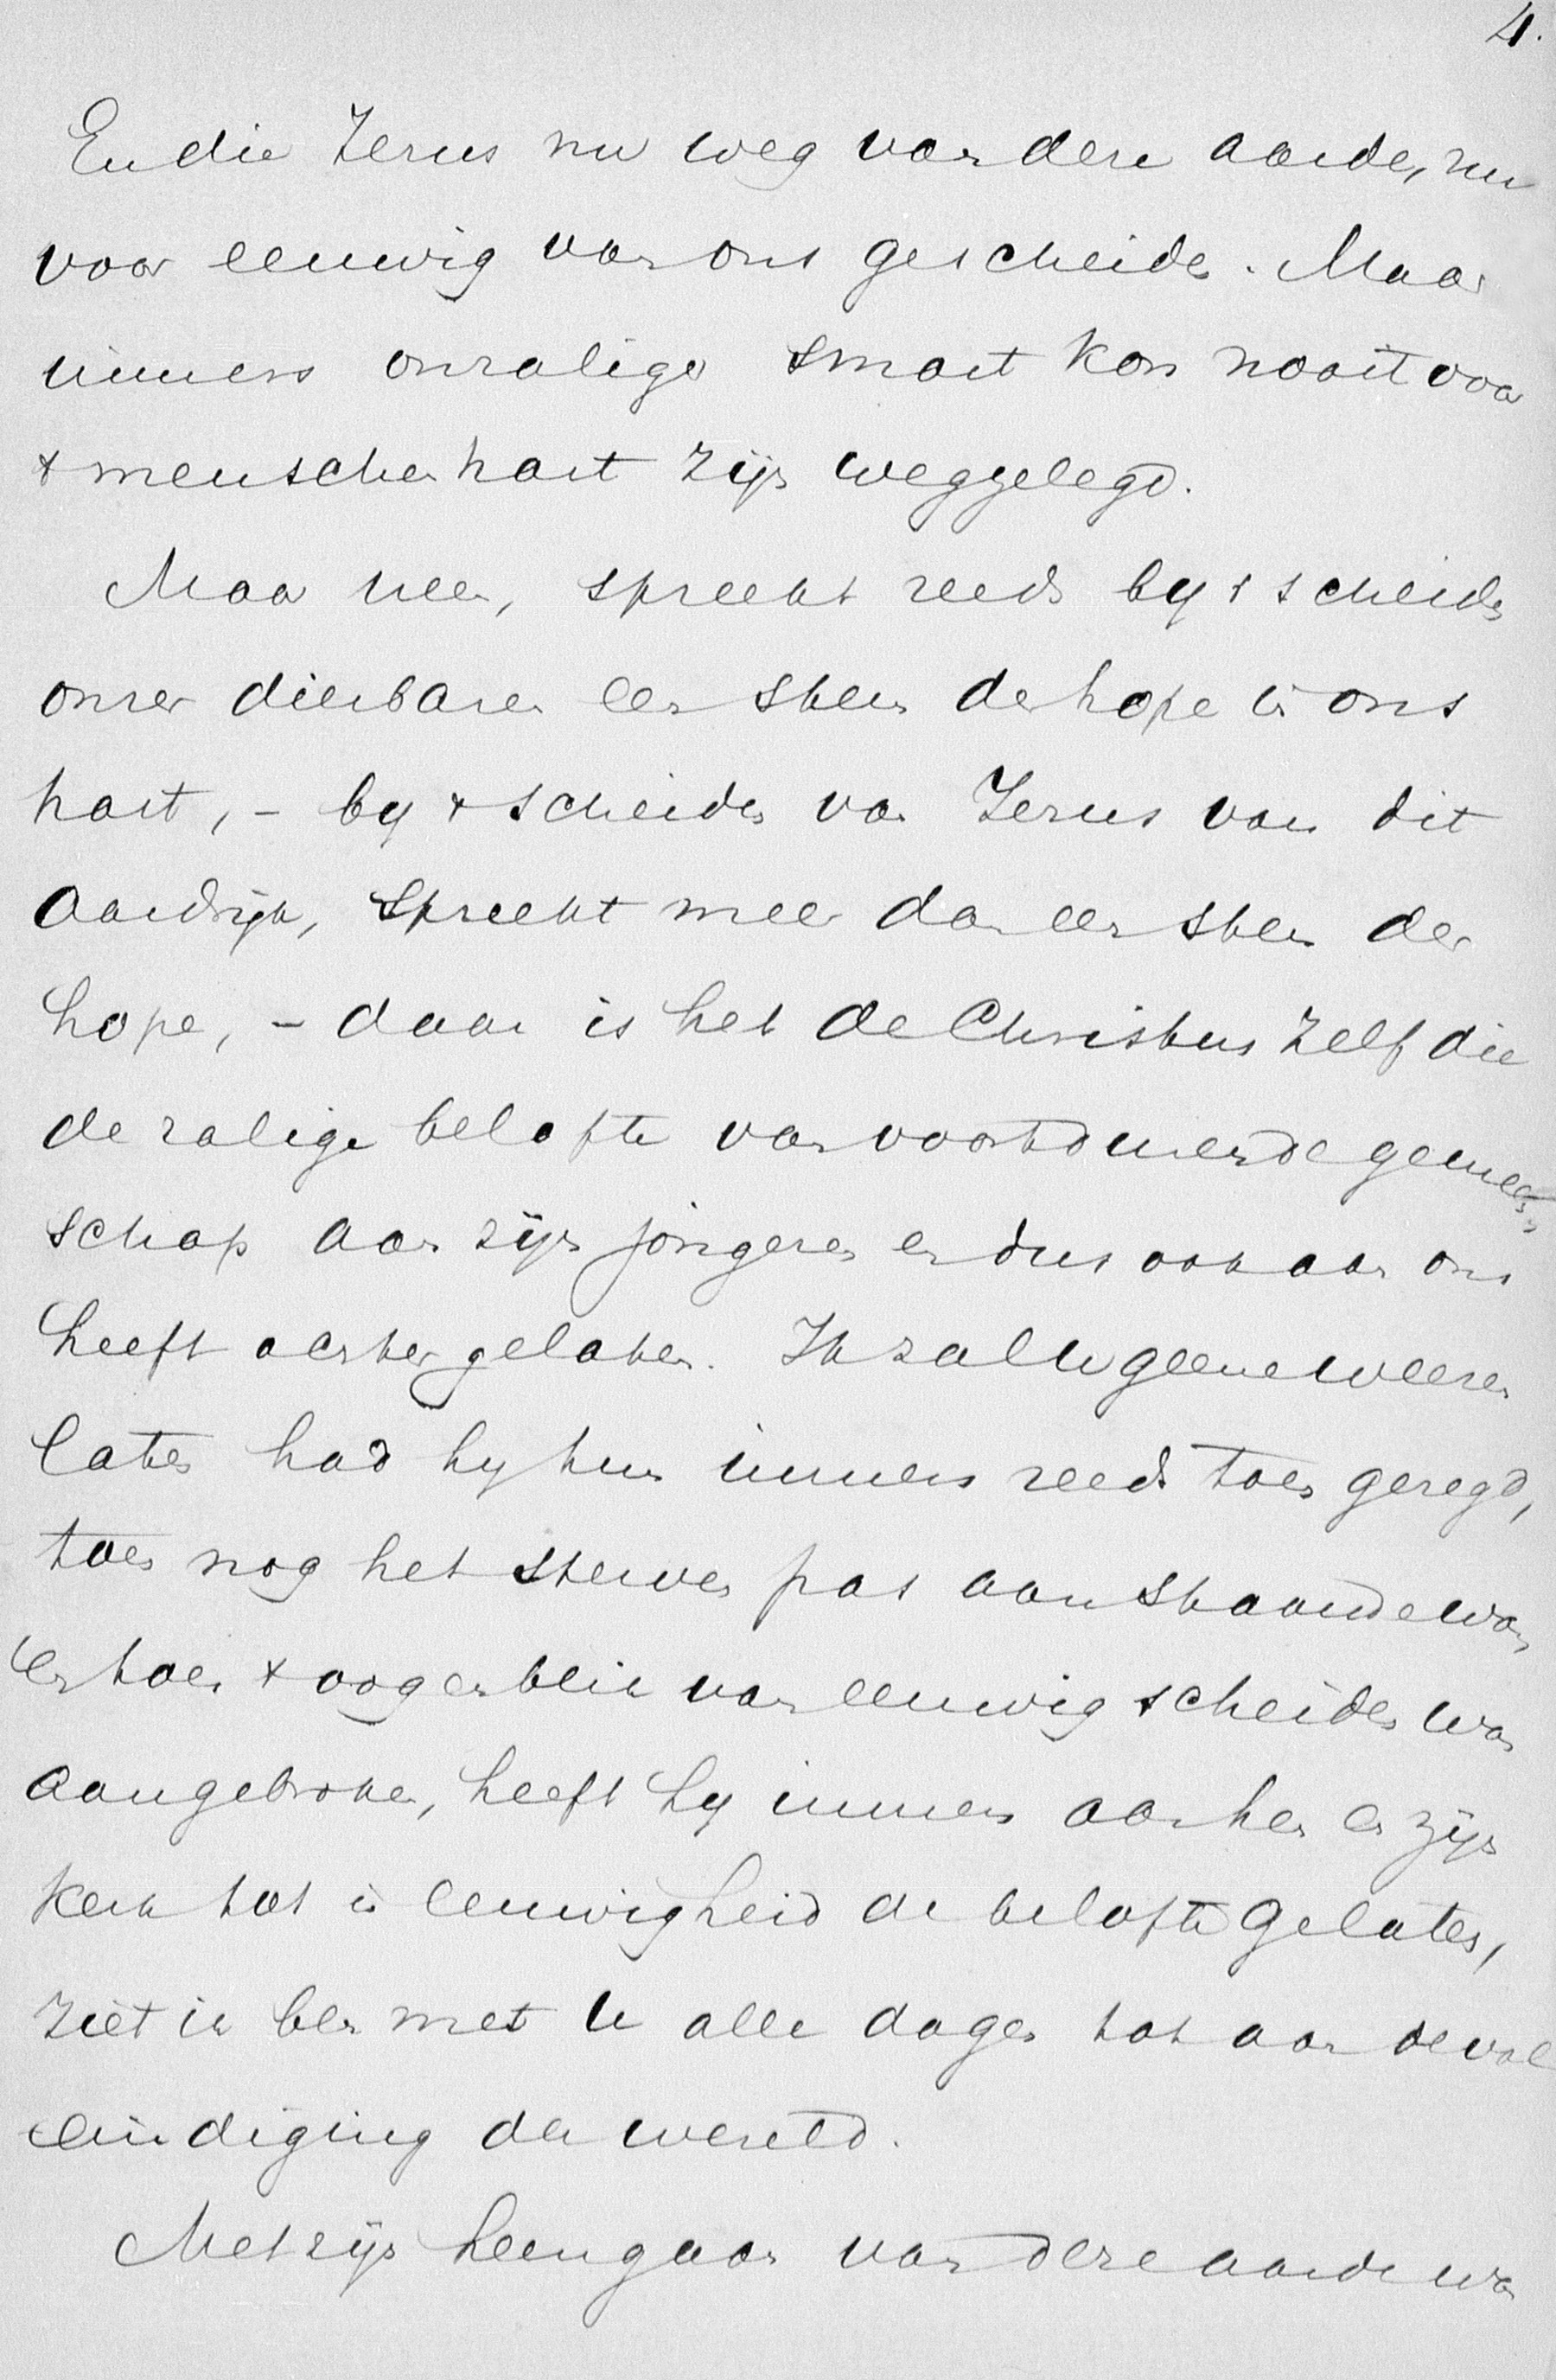 4.
En die Jezus nu weg van deze aarde, nu
voor eeuwig van ons gescheiden. Maar
immers onzaliger smart kon nooit voor
't menschenhart zijn weggelegd.
Maar neen, spreekt reeds by 't scheiden
onzer dierbaren een stem der hope in ons
hart, - by 't scheiden van Jezus van dit
aardrijk, spreekt meer dan een stem der
hope, - daar is het de Christus zelf die
de zalige belofte van voortdurende gemeen-
schap aan zijn jongeren en dus ook aan ons
heeft achtergelaten. Ik zal U geene weezen
laten had hy hun immers reeds toen gezegd,
toen nog het sterven pas aanstaande was,
En toen 't oogenblik van eeuwig scheiden was
aangebroken, heeft hy immers aan hen en zijn
kerk tot in eeuwigheid de belofte gelaten,
ziet ik ben met U alle dagen tot aan de vol
eindiging der wereld.
Met zijn heengaan van deze aarde was